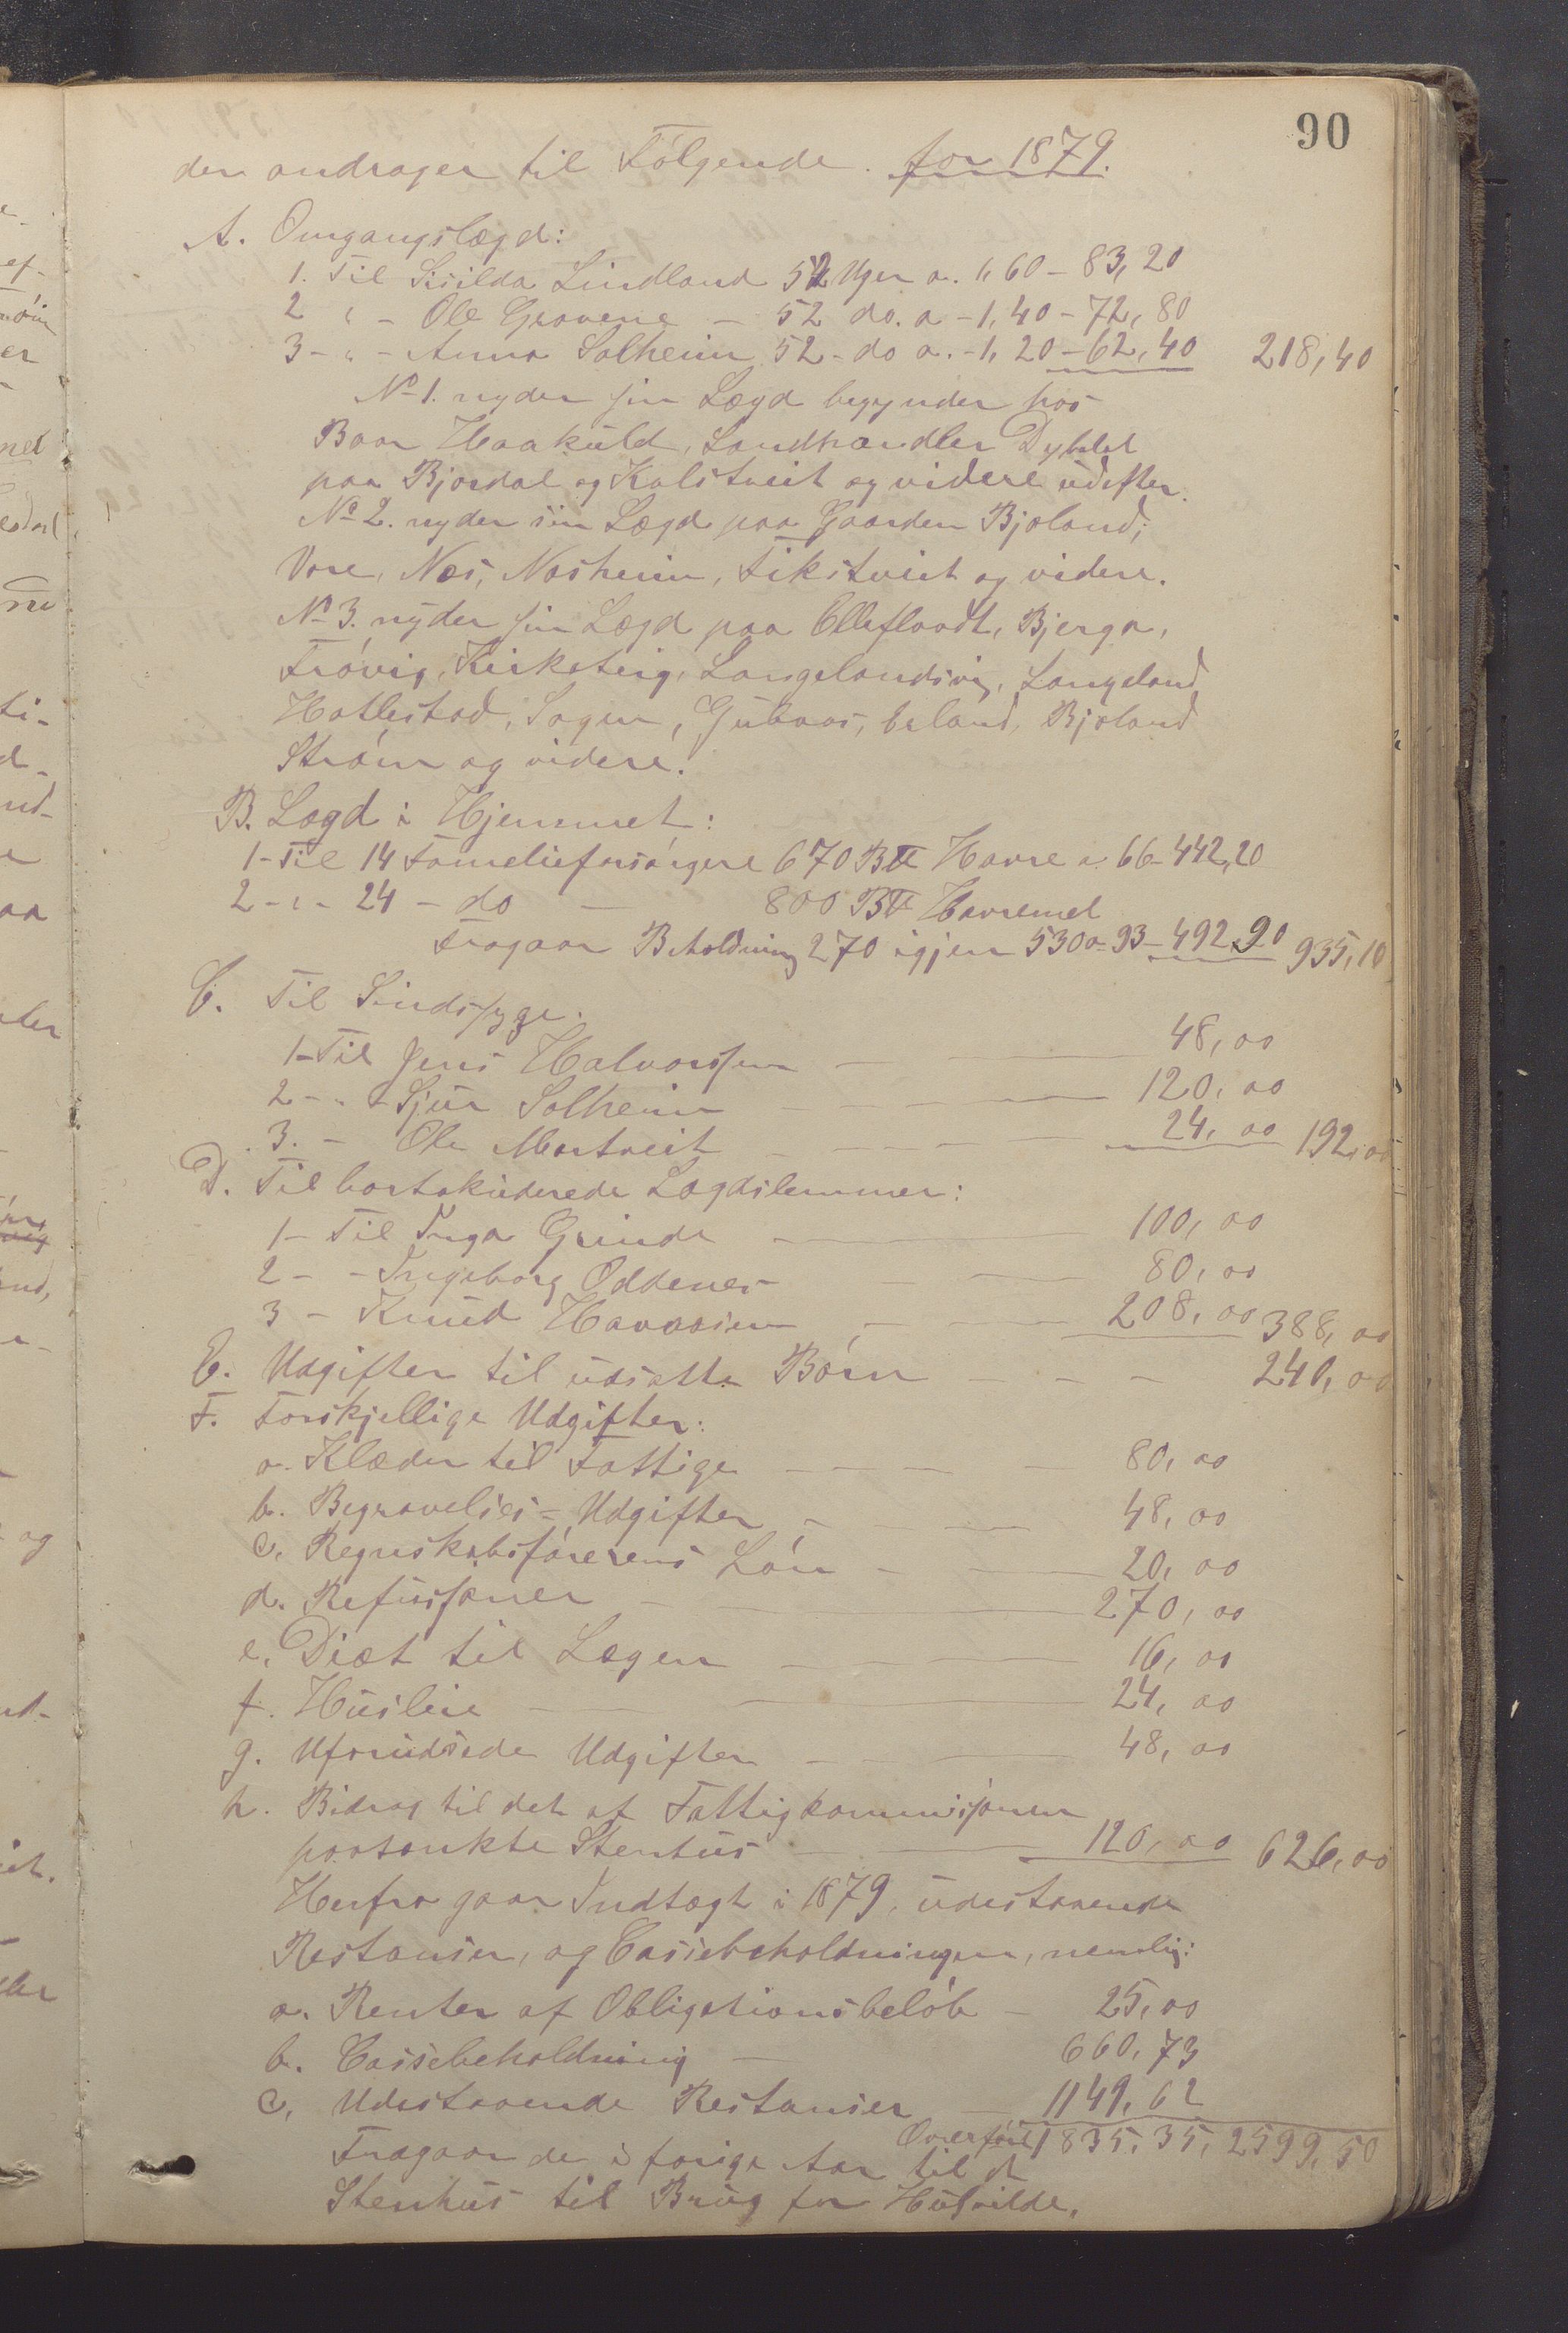 90
der andrager til Følgende. for 1879.
A. Omgangslægd:
1. Til Sisilda Lindland 52 Uger a. 1,60 - 83,20
2 " - Ole Gravene - 52 do. a - 1,40 - 72,80
3 - " - Anna Solheim 52 - do a. - 1,20 - 62,40 218,40
No 1. nyder sin Lægd begynder hos
Baar Haakuld, Landhandler
paa Bjordal og Kalstveit og videre udefter.
No 2. nyder sin Lægd paa Gaarden Bjoland,
Vare, Næs, Nasheim, Fikstveit og videre.
No 3. nyder sin Lægd paa Elleflaadt, Bjerga,
Frøvig, Kirketeig, Langelandsvig, Langeland
Hatlestad, Sagen, Gubaas, Erland, Bjoland
Strøm og videre.
B. Lægd i Hjemmet:
1 - Til 14 Familieforsørgere 670 B℔ Havre a. 66 - 442,20
2 - " - 24 - do - 800 B℔ Havremel
Fragaar Beholdning 270 igjen 530 a - 93 - 492 90 935,10
C. Til Sindssyge.
1 - Til Jens Halvorssen 48,00
2 - " - Sjur Solheim 120,00
3. - Ole Mostveit 24,00 192,00
D. Til bortakuderede Lægdslemmer:
1 - Til Inga Grinde 100,00
2 - - Ingeborg Oddenes 80,00
3 - Knud Havaasien 208,00 388,00
E. Udgifter til udsatte Børn - - - 240,00
F. Forskjellige Udgifter:
a. Klæder til Fattige 80,00
b. Begravelses = Udgifter 48,00
c. Regnskabsførerens Løn 20,00
d. Refussjoner 270,00
e. Diæt til Lægen 16,00
f. Husleie 24,00
g. Uforudsede Udgifter 48,00
h. Bidrag til det af Fattigkommissjonen
paatænkte Stenhus 120,00 626,00
Herfra gaar Indtægt i 1879, udestaaende
Restanser, og Cassebeholdningen, nemlig:
a. Renter af Obligationsbeløb - 25,00
b. Cassebeholdning 660,73
c. Udestaaende Restanser 1149,62
Overført 1835,35, 2599,50
Fragaar de i forige Aar til et
Stenhus til Brug for Husvilde,